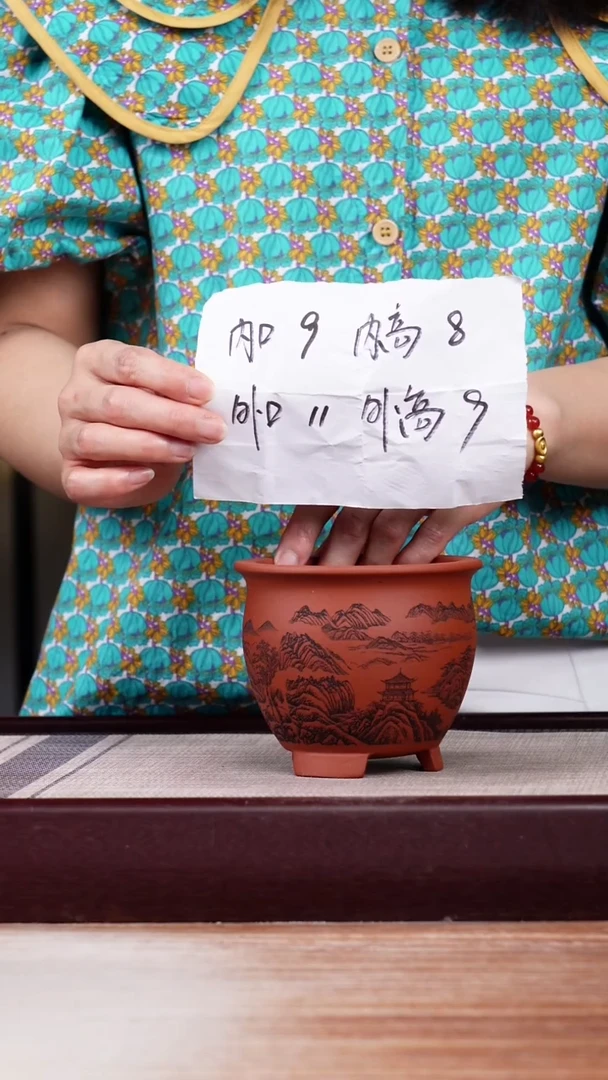 内口 9 内高 8
外口 11 外高 9